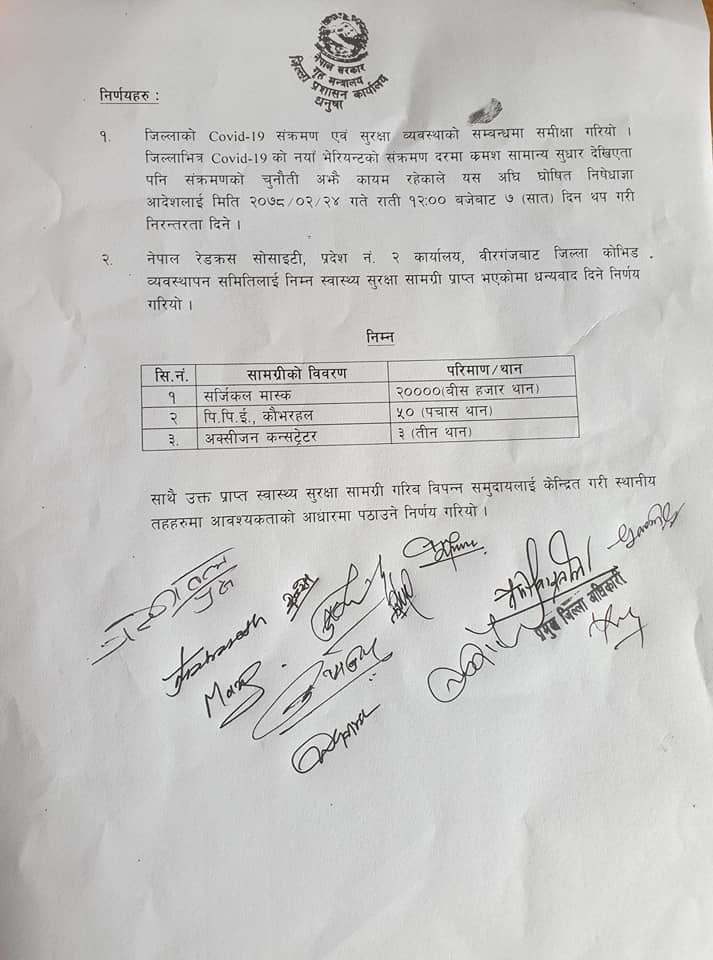 नेपाल सरकार
गृह मन्त्रालय
जिल्ला प्रशासन कार्यालय
धनुषा
निर्णयहरु :
१. जिल्लाको Covid-19 संक्रमण एवं सुरक्षा व्यवस्थाको सम्बन्धमा समीक्षा गरियो ।
जिल्लाभित्र Covid-19 को नयाँ भेरियन्टको संक्रमण दरमा कमश सामान्य सुधार देखिएता
पनि संक्रमणको चुनौती अझै कायम रहेकाले यस अघि घोषित निषेधाज्ञा
आदेशलाई मिति २०७८/०२/२४ गते राती १२:०० बजेबाट ७ (सात) दिन थप गरी
निरन्तरता दिने ।
२. नेपाल रेडक्रस सोसाइटी, प्रदेश नं. २ कार्यालय, वीरगंजबाट जिल्ला कोभिड
व्यवस्थापन समितिलाई निम्न स्वास्थ्य सुरक्षा सामग्री प्राप्त भएकोमा धन्यवाद दिने निर्णय
गरियो ।
निम्न
सि.नं. सामग्रीको विवरण परिमाण/थान
१ सर्जिकल मास्क २००००(बीस हजार थान)
२ पि.पि.ई., कौभरहल ५० (पचास थान)
३. अक्सीजन कन्सट्रेटर ३ (तीन थान)
साथै उक्त प्राप्त स्वास्थ्य सुरक्षा सामग्री गरिब विपन्न समुदायलाई केन्द्रित गरी स्थानीय
तहहरुमा आवश्यकताको आधारमा पठाउने निर्णय गरियो ।
प्रमुख जिल्ला अधिकारी